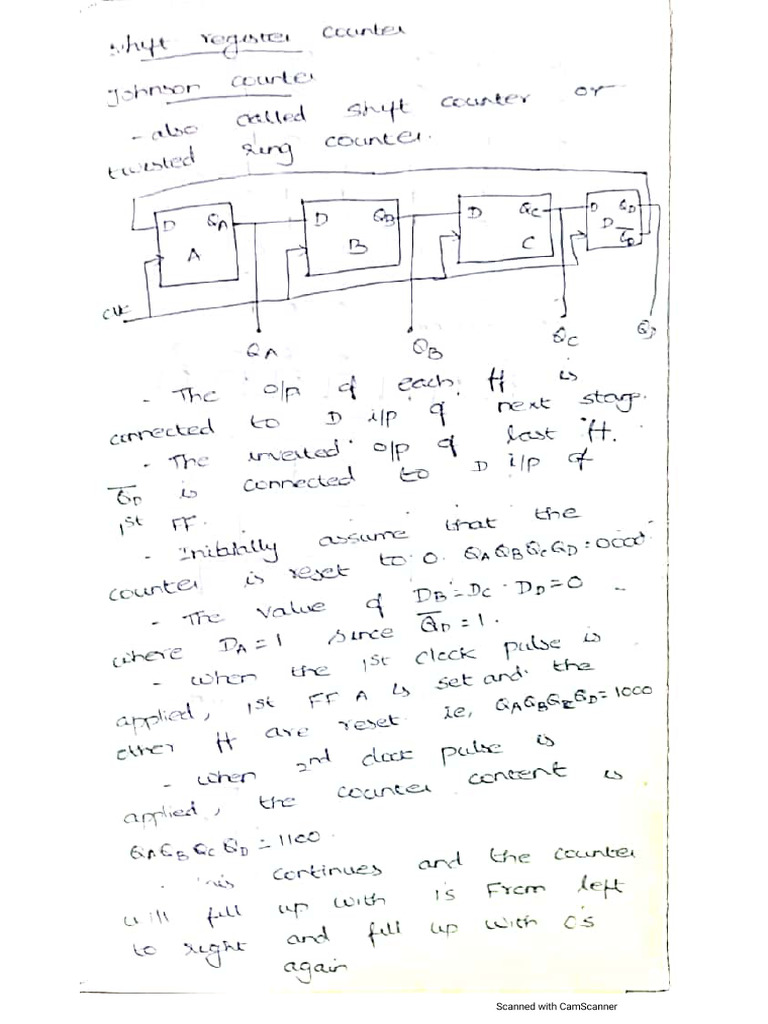 shift register counter
Johnson counter
- also called shift counter or
twisted ring counter.
D QA D QB D QC D QD
A B C D Q̅D
CLK
QA QB QC QD
- The o/p of each ff is
connected to D i/p of next stage.
- The inverted o/p of last ff.
Q̅D is connected to D i/p of
1st FF.
- Initially assume that the
counter is reset to 0. QAQBQCQD=0000
- The value of DB=DC=DD=0
where DA=1 since Q̅D=1.
- when the 1st clock pulse is
applied, 1st FF A is set and the
other ff are reset. ie, QAQBQCQD=1000
- when 2nd clock pulse is
applied, the counter content is
QAQBQCQD=1100.
- This continues and the counter
will fill up with 1s From left
to right and fill up with 0s
again
Scanned with CamScanner